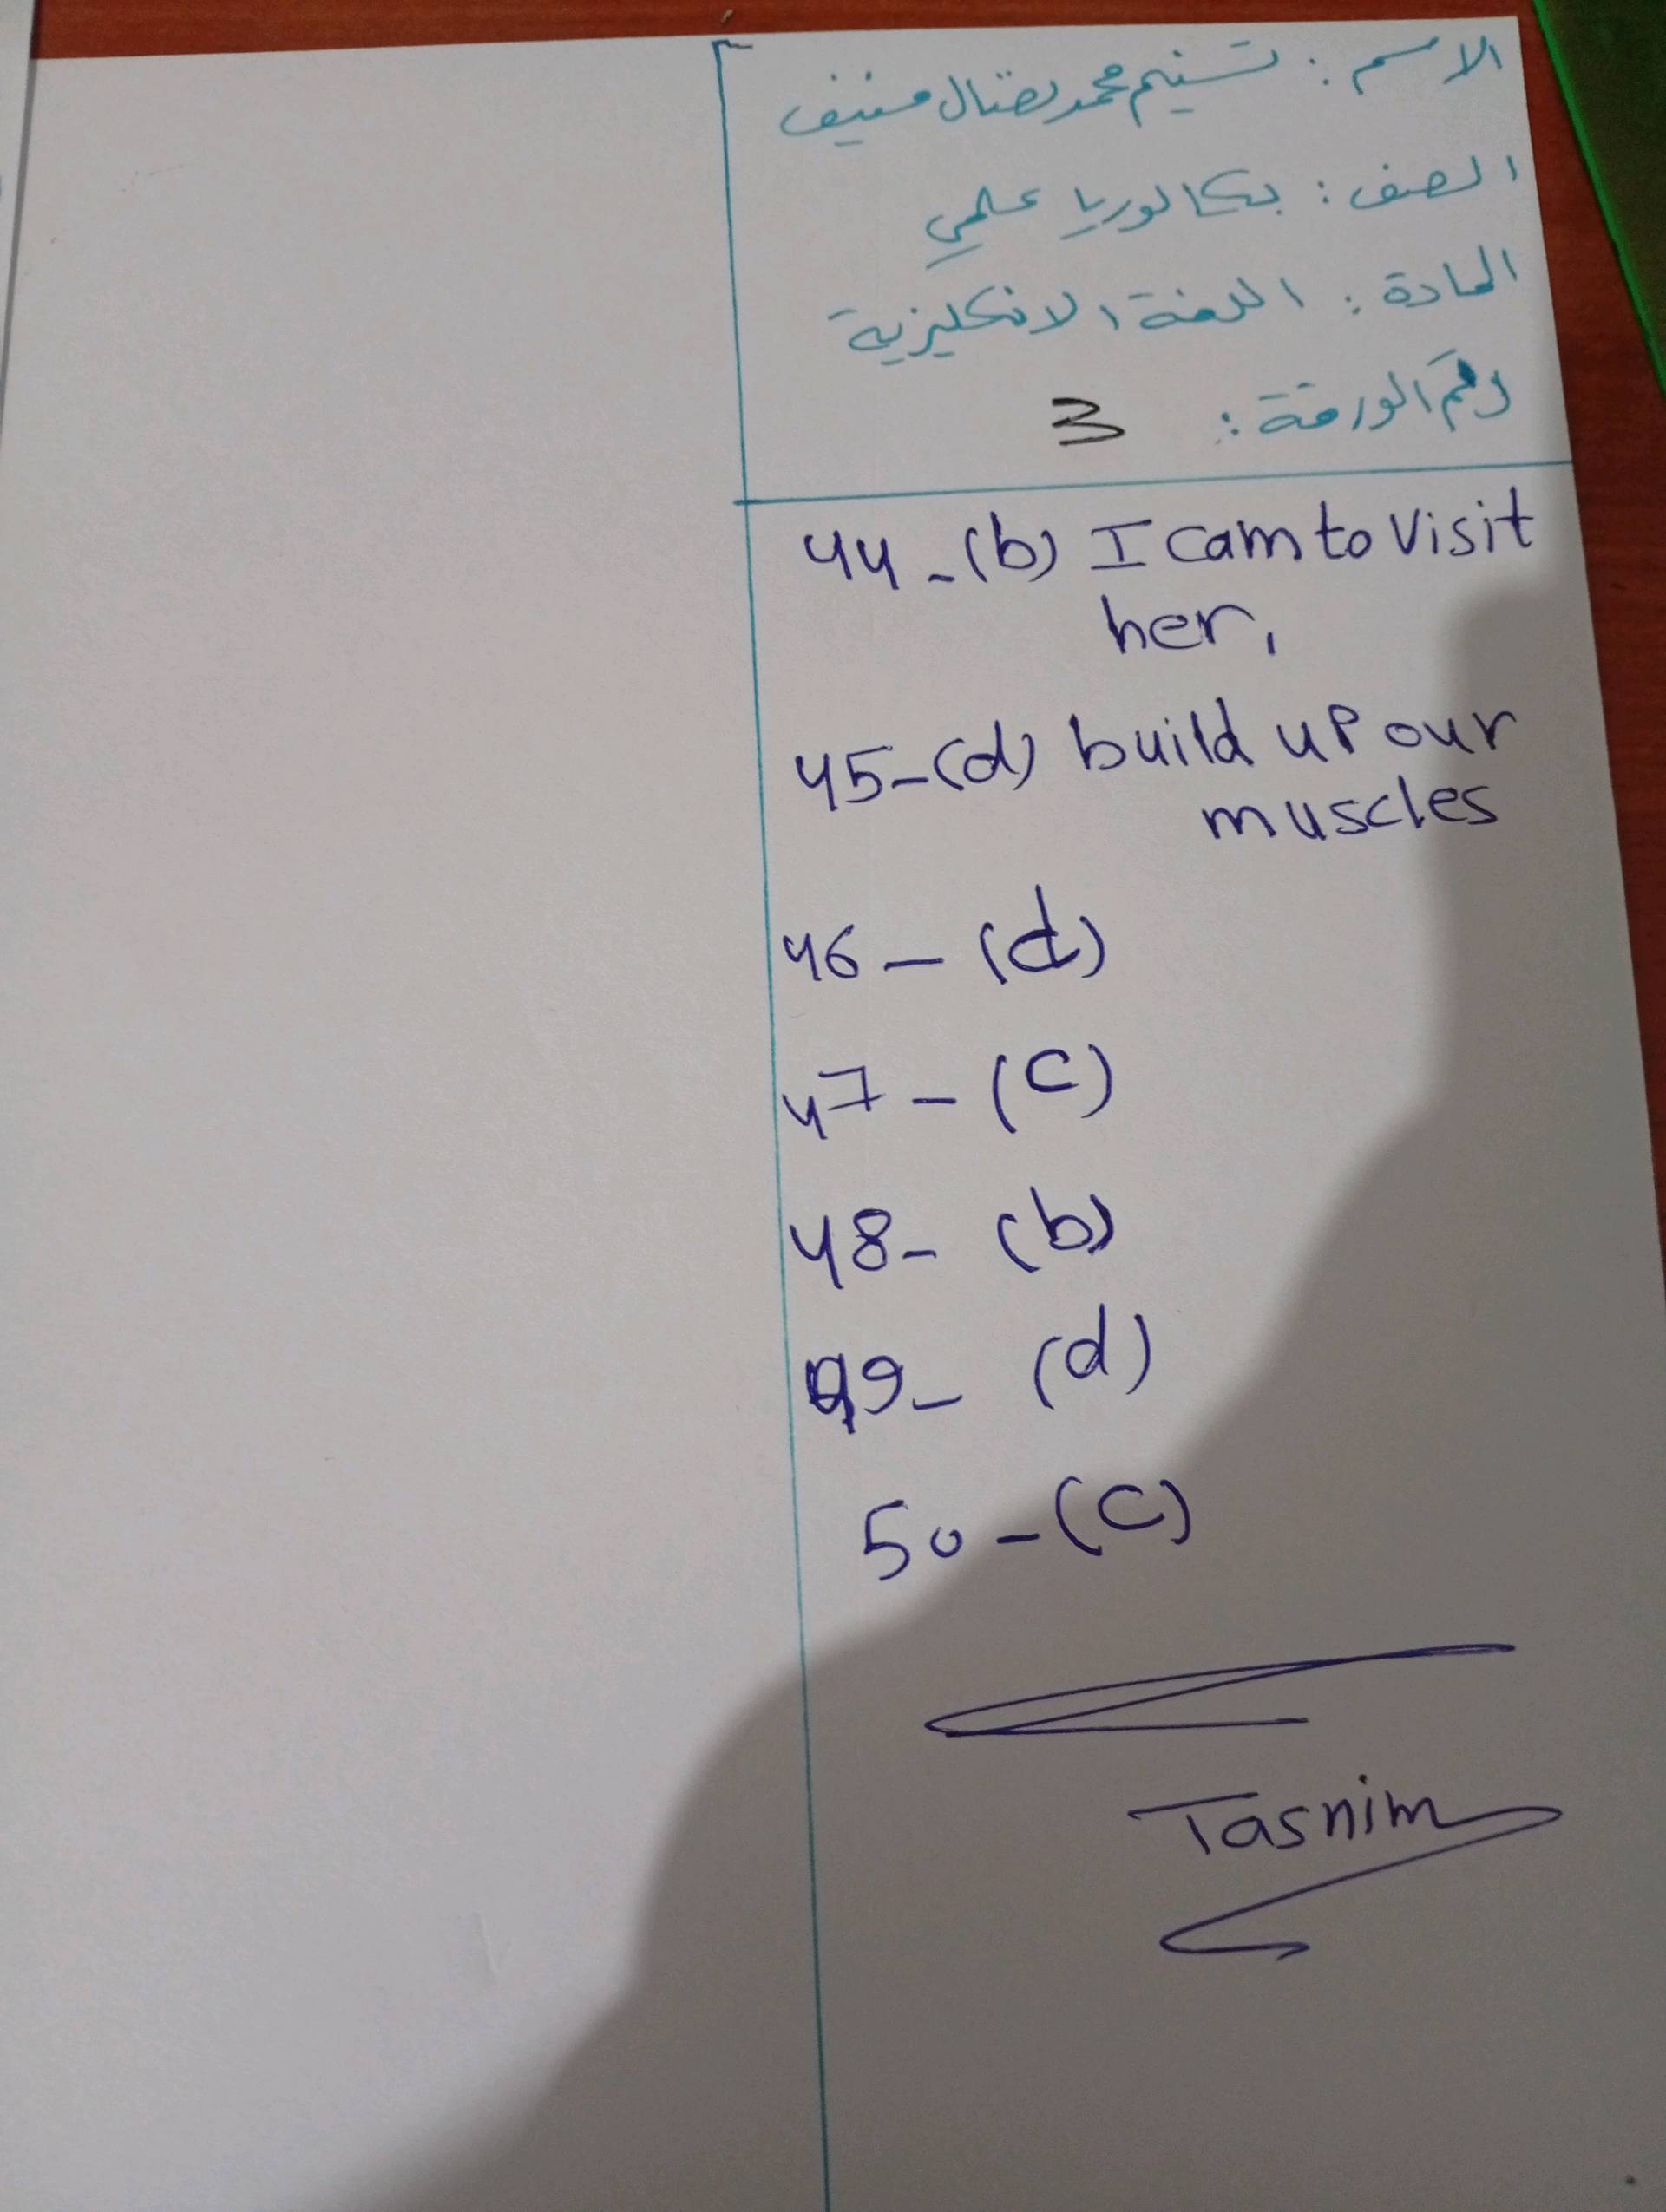 الاسم : تسنيم محمد نضال منيف
الصف : بكالوريا علمي
المادة : اللغة الانكليزية
رقم الورقة : 3
44 - (b) I cam to visit
her,
45 - (d) build up our
muscles
46 - (d)
47 - (c)
48 - (b)
49 - (d)
50 - (c)
Tasnim